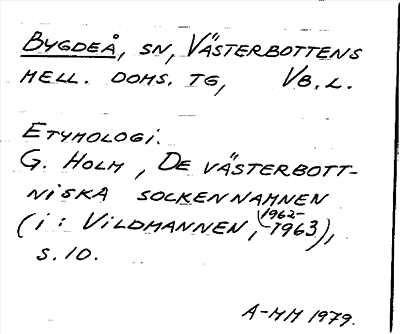 BYGDEÅ, SN, VÄSTERBOTTENS
MELL. DOMS. TG, VB. L.
ETYMOLOGI.
G. HOLM, DE VÄSTERBOTT-
NISKA SOCKENNAMNEN
(I: VILDMANNEN, 1962-1963),
S. 10.
A-MM 1979.